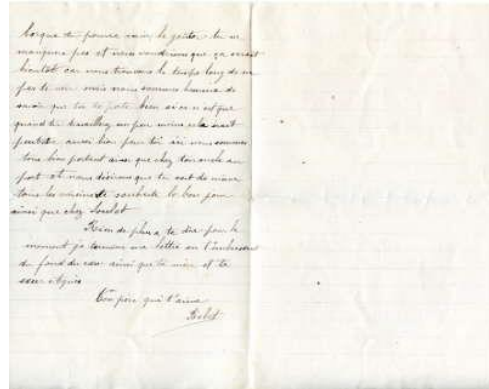 lorque tu pourra venir le goûter tu ne
manquera pas et nous voudrions que ça serait
bientot car nous trouvons le temps long de ne
pas te voir mais nous sommes heureux de
savoir que tu te porte bien si ce n'est que
quand tu travaillez un peu moins cela serait
peutetre aussi bien pour toi ici nous sommes
tous bien portant ainsi que chez ton oncle au
port et nous désirons que tu soit de même
tous les voisins te souhaite le bon jour
ainsi que chez Soulat
Rien de plus a te dire pour le
moment je termine ma lettre en t'embrassant
du fond du cœur ainsi que ta mère et ta
sœur
Ton père qui t'aime